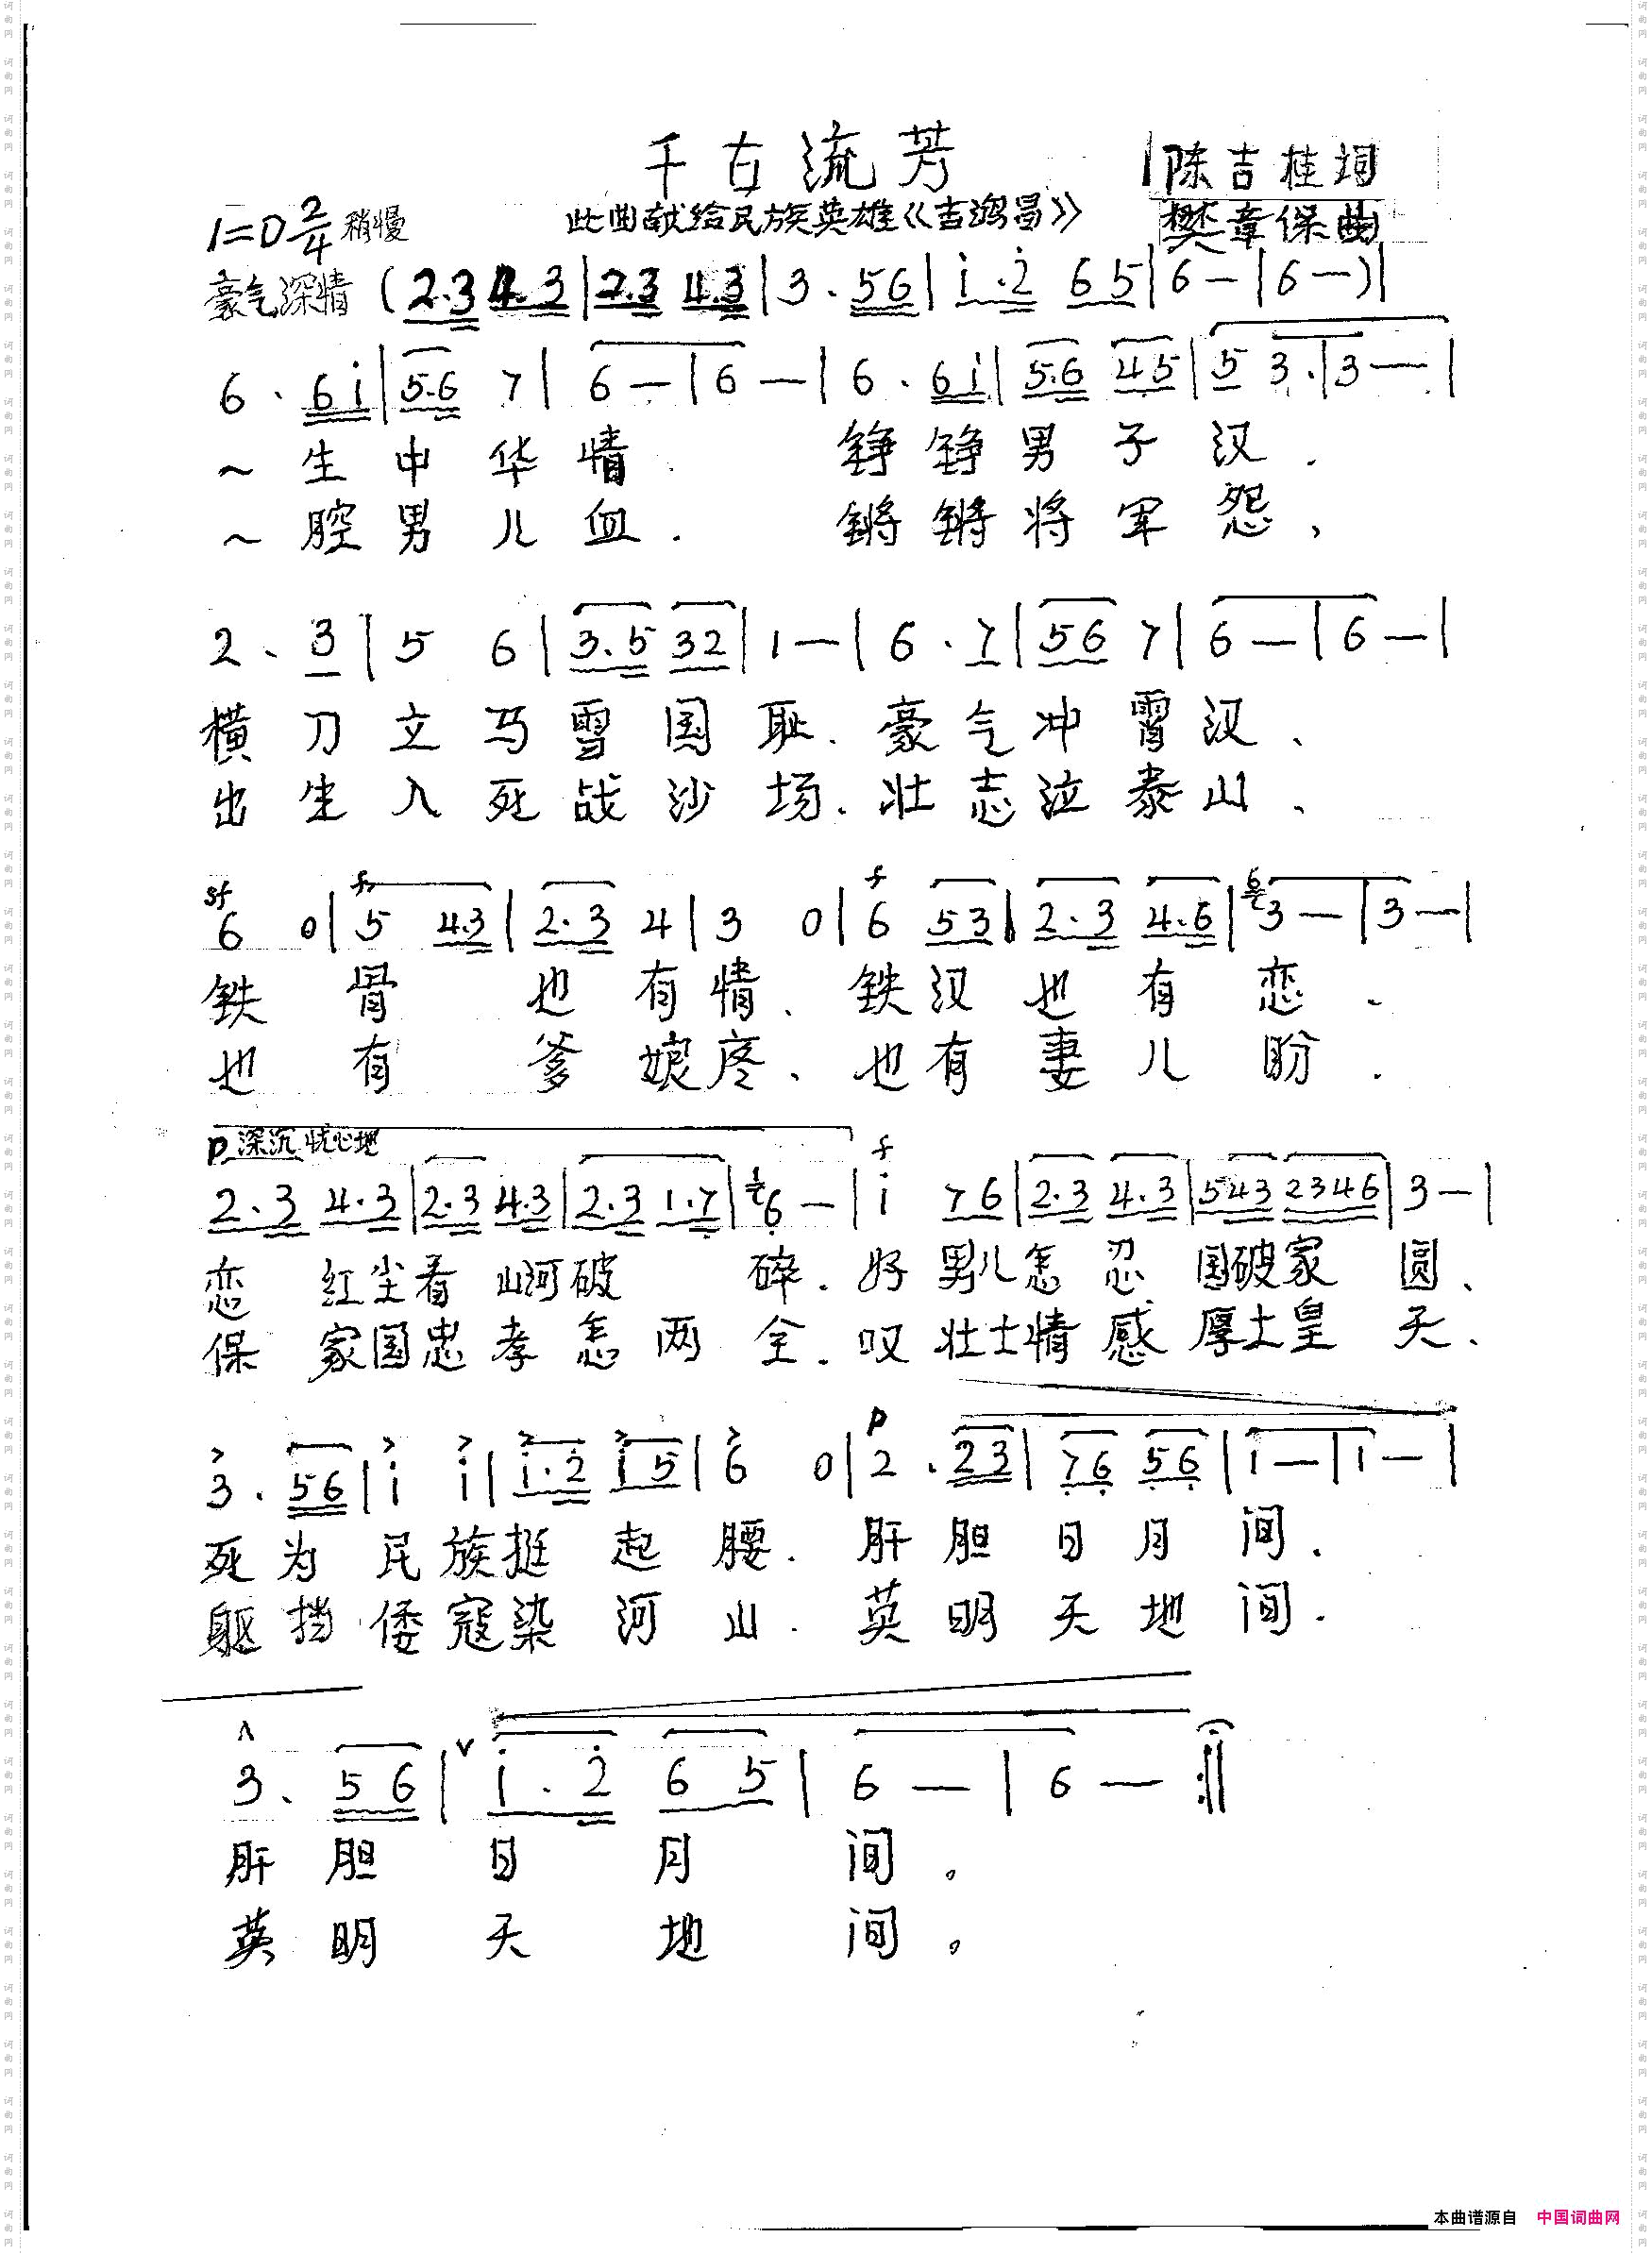 千古流芳
陈吉桂词
1=D 2/4 稍慢
此曲献给民族英雄《吉鸿昌》
樊章保曲
豪气深情 (2.3 4.3|2.3 4.3|3.56|i.2 65|6—|6—)|
6.6i|5.6 7|6—|6—|6.6i|5.6 45|5 3.|3—|
~生中华情. 铮铮男子汉.
~腔男儿血. 锵锵将军怨、
2.3|5 6|3.5 32|1—|6.7|56 7|6—|6—|
横刀立马雪国耻.豪气冲霄汉、
出生入死战沙场.壮志泣泰山、
sf f f
6 0|5 4.3|2.3 4|3 0|6 53|2.3 4.6|6 3—|3—|
铁骨也有情、铁汉也有恋.
也有爹娘疼、也有妻儿盼.
p 深沉 忧心地 f
2.3 4.3|2.3 4.3|2.3 1.7|1 6—|i 76|2.3 4.3|543 2346|3—|
恋红尘看山河破碎.好男儿怎忍国破家圆、
保家国忠孝怎两全.叹壮士情感厚土皇天、
p
3.56|i i|i.2 i5|6 0|2.23|76 56|1—|1—|
死为民族挺起腰.肝胆日月间.
躯挡倭寇染河山.英明天地间.
3.56|i.2 65|6—|6—:||
肝胆日月间。
英明天地间。
本曲谱源自 中国词曲网